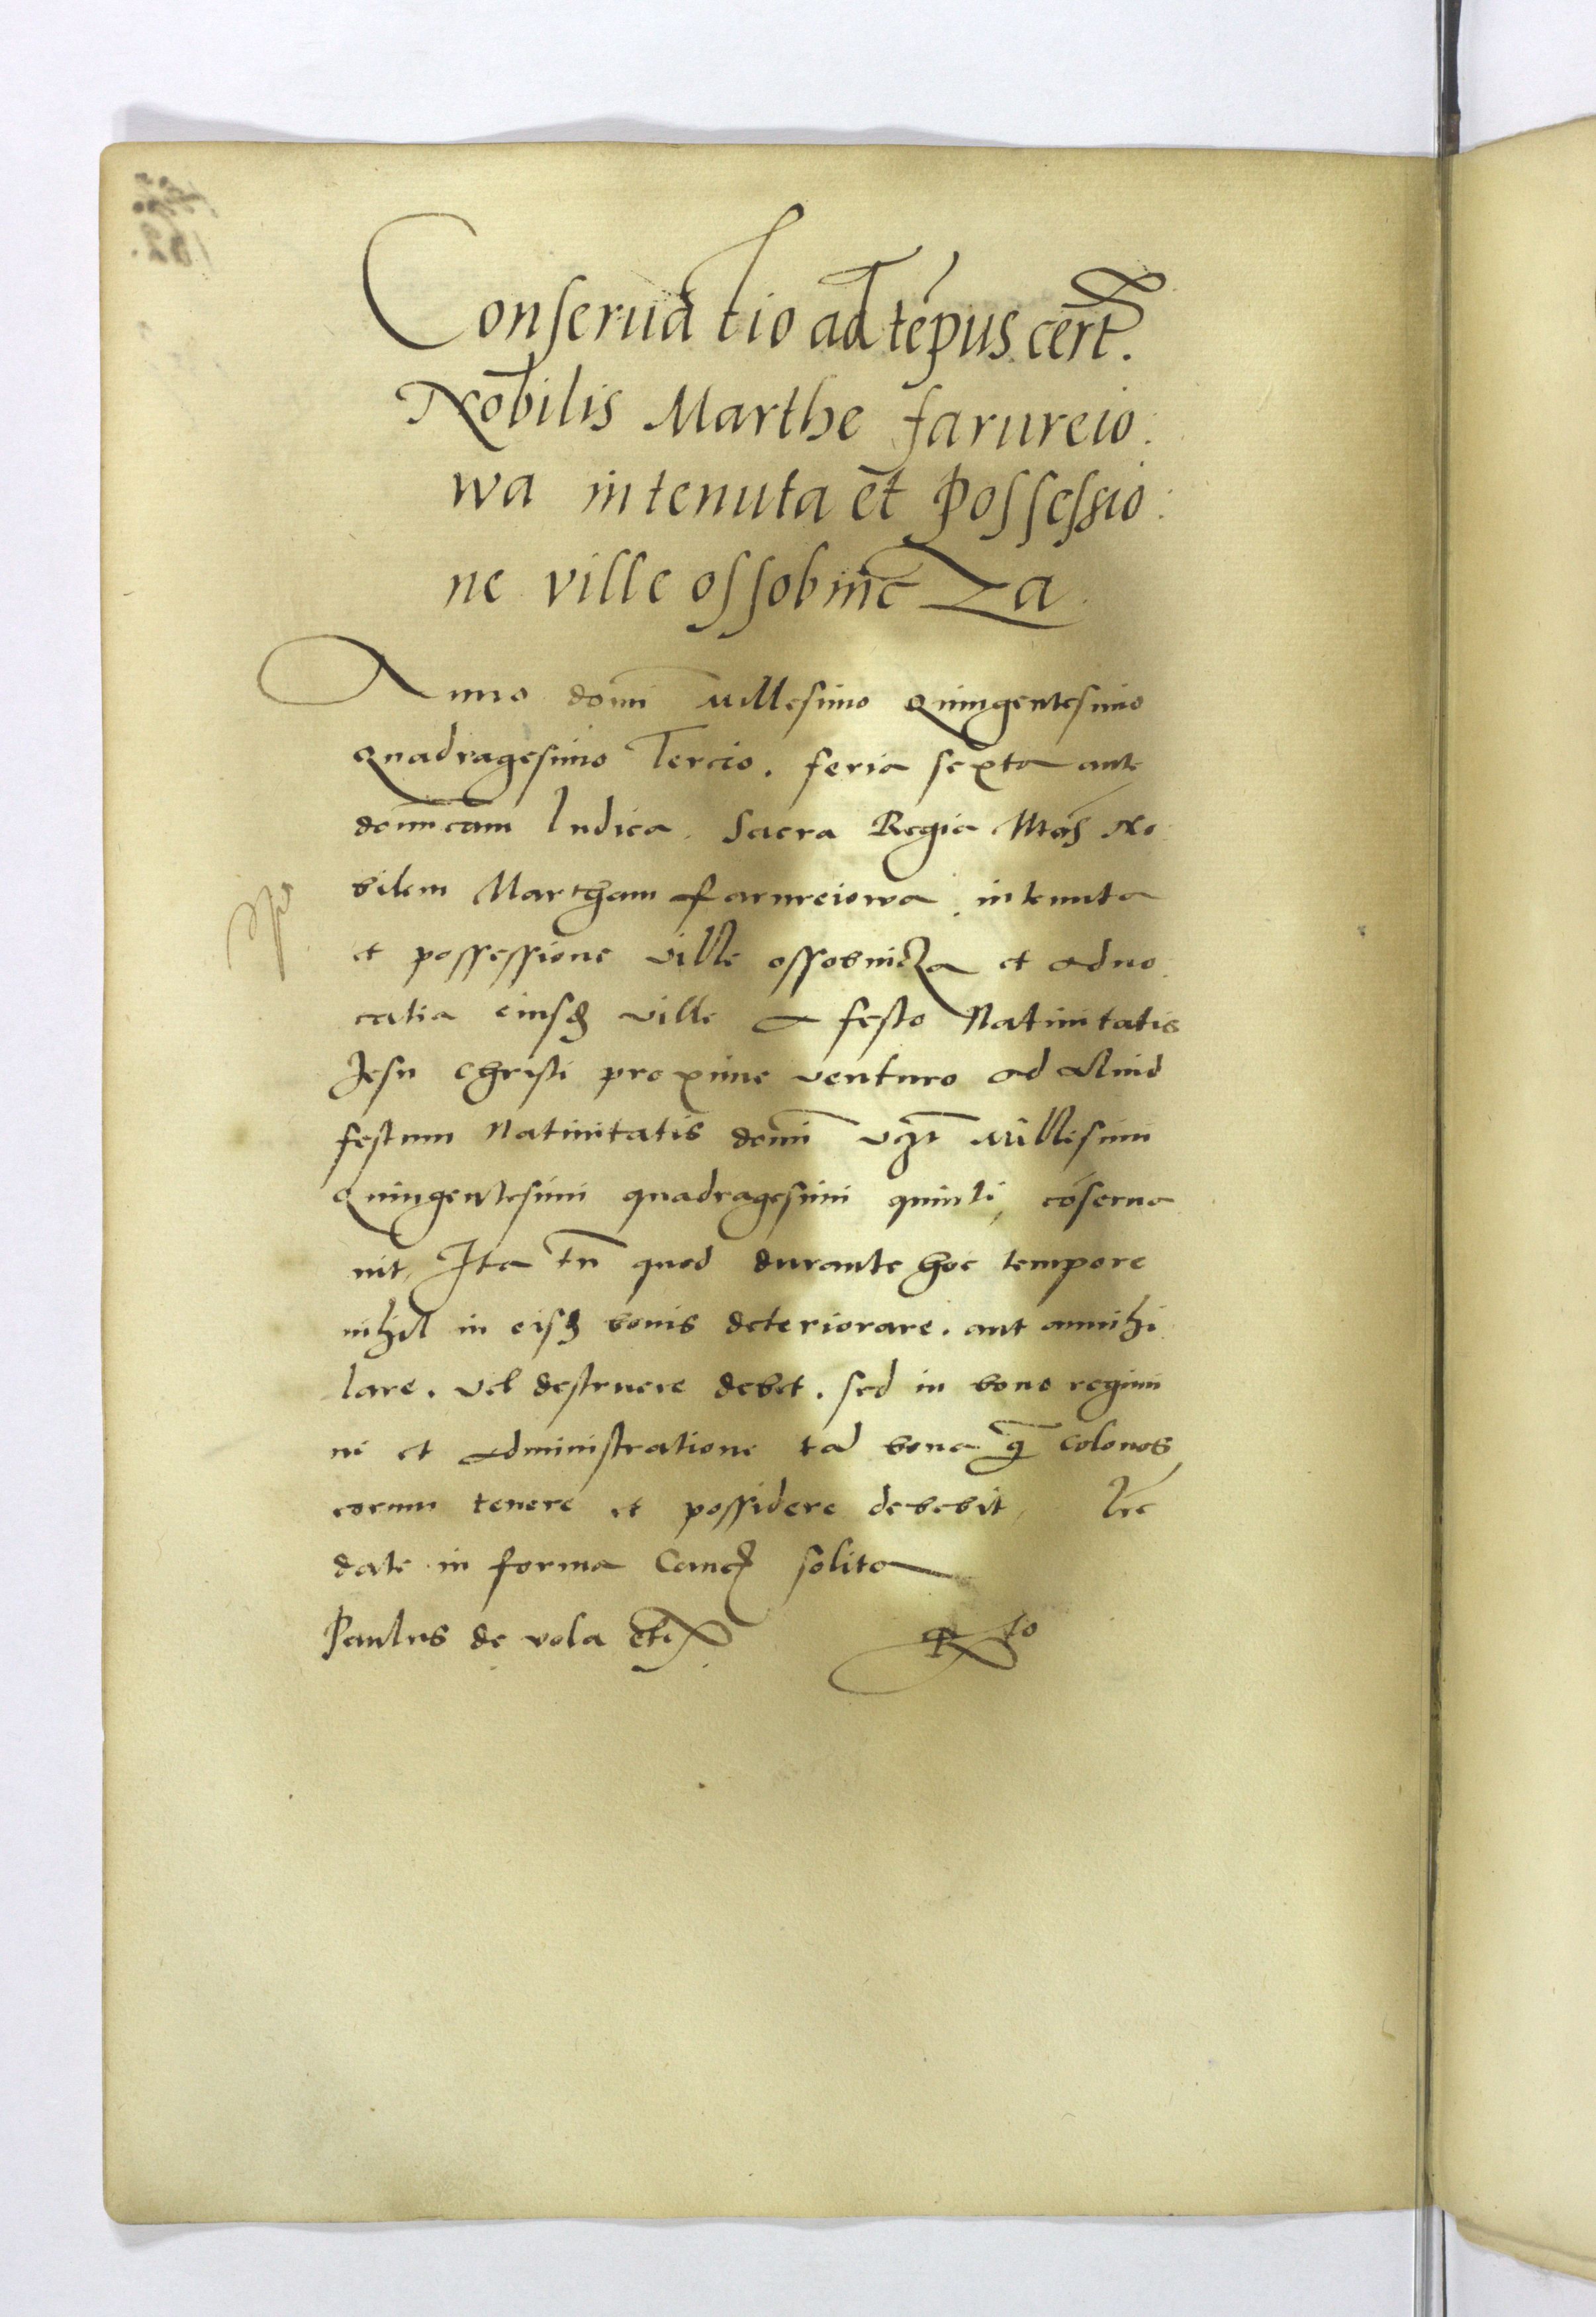 Conserua tio ad tēpus cert.
Nobilis Marthe farureio:
wa in tenuta et Possessio:
ne ville ossobnicza
Anno domī Millesimo Quingentesimo
Quadragesimo Tercio. feria sexta ante
domīcam Iudica. Sacra Regia Mās No
bilem Martham farureiowa in tenuta
et possessione ville ossobnicza et aduo
catia eiusđ ville a festo Natiuitatis
Jesu Christi proxime venturo ad aliud
festum Natiuitatis domī vꝫt Millesimi
Quingentesimi quadragesimi quinti cōserua
uit, Ita tn̄ quod durante hoc tempore
nihil in eisđ bonis deteriorare. aut annihi
lare. vel destruere debet. sed in bono regimi
ne et administratione tā bona q̄ colonos
eorum tenere et possidere debebit, Lrē
date in forma Canc solita
Paulus de vola